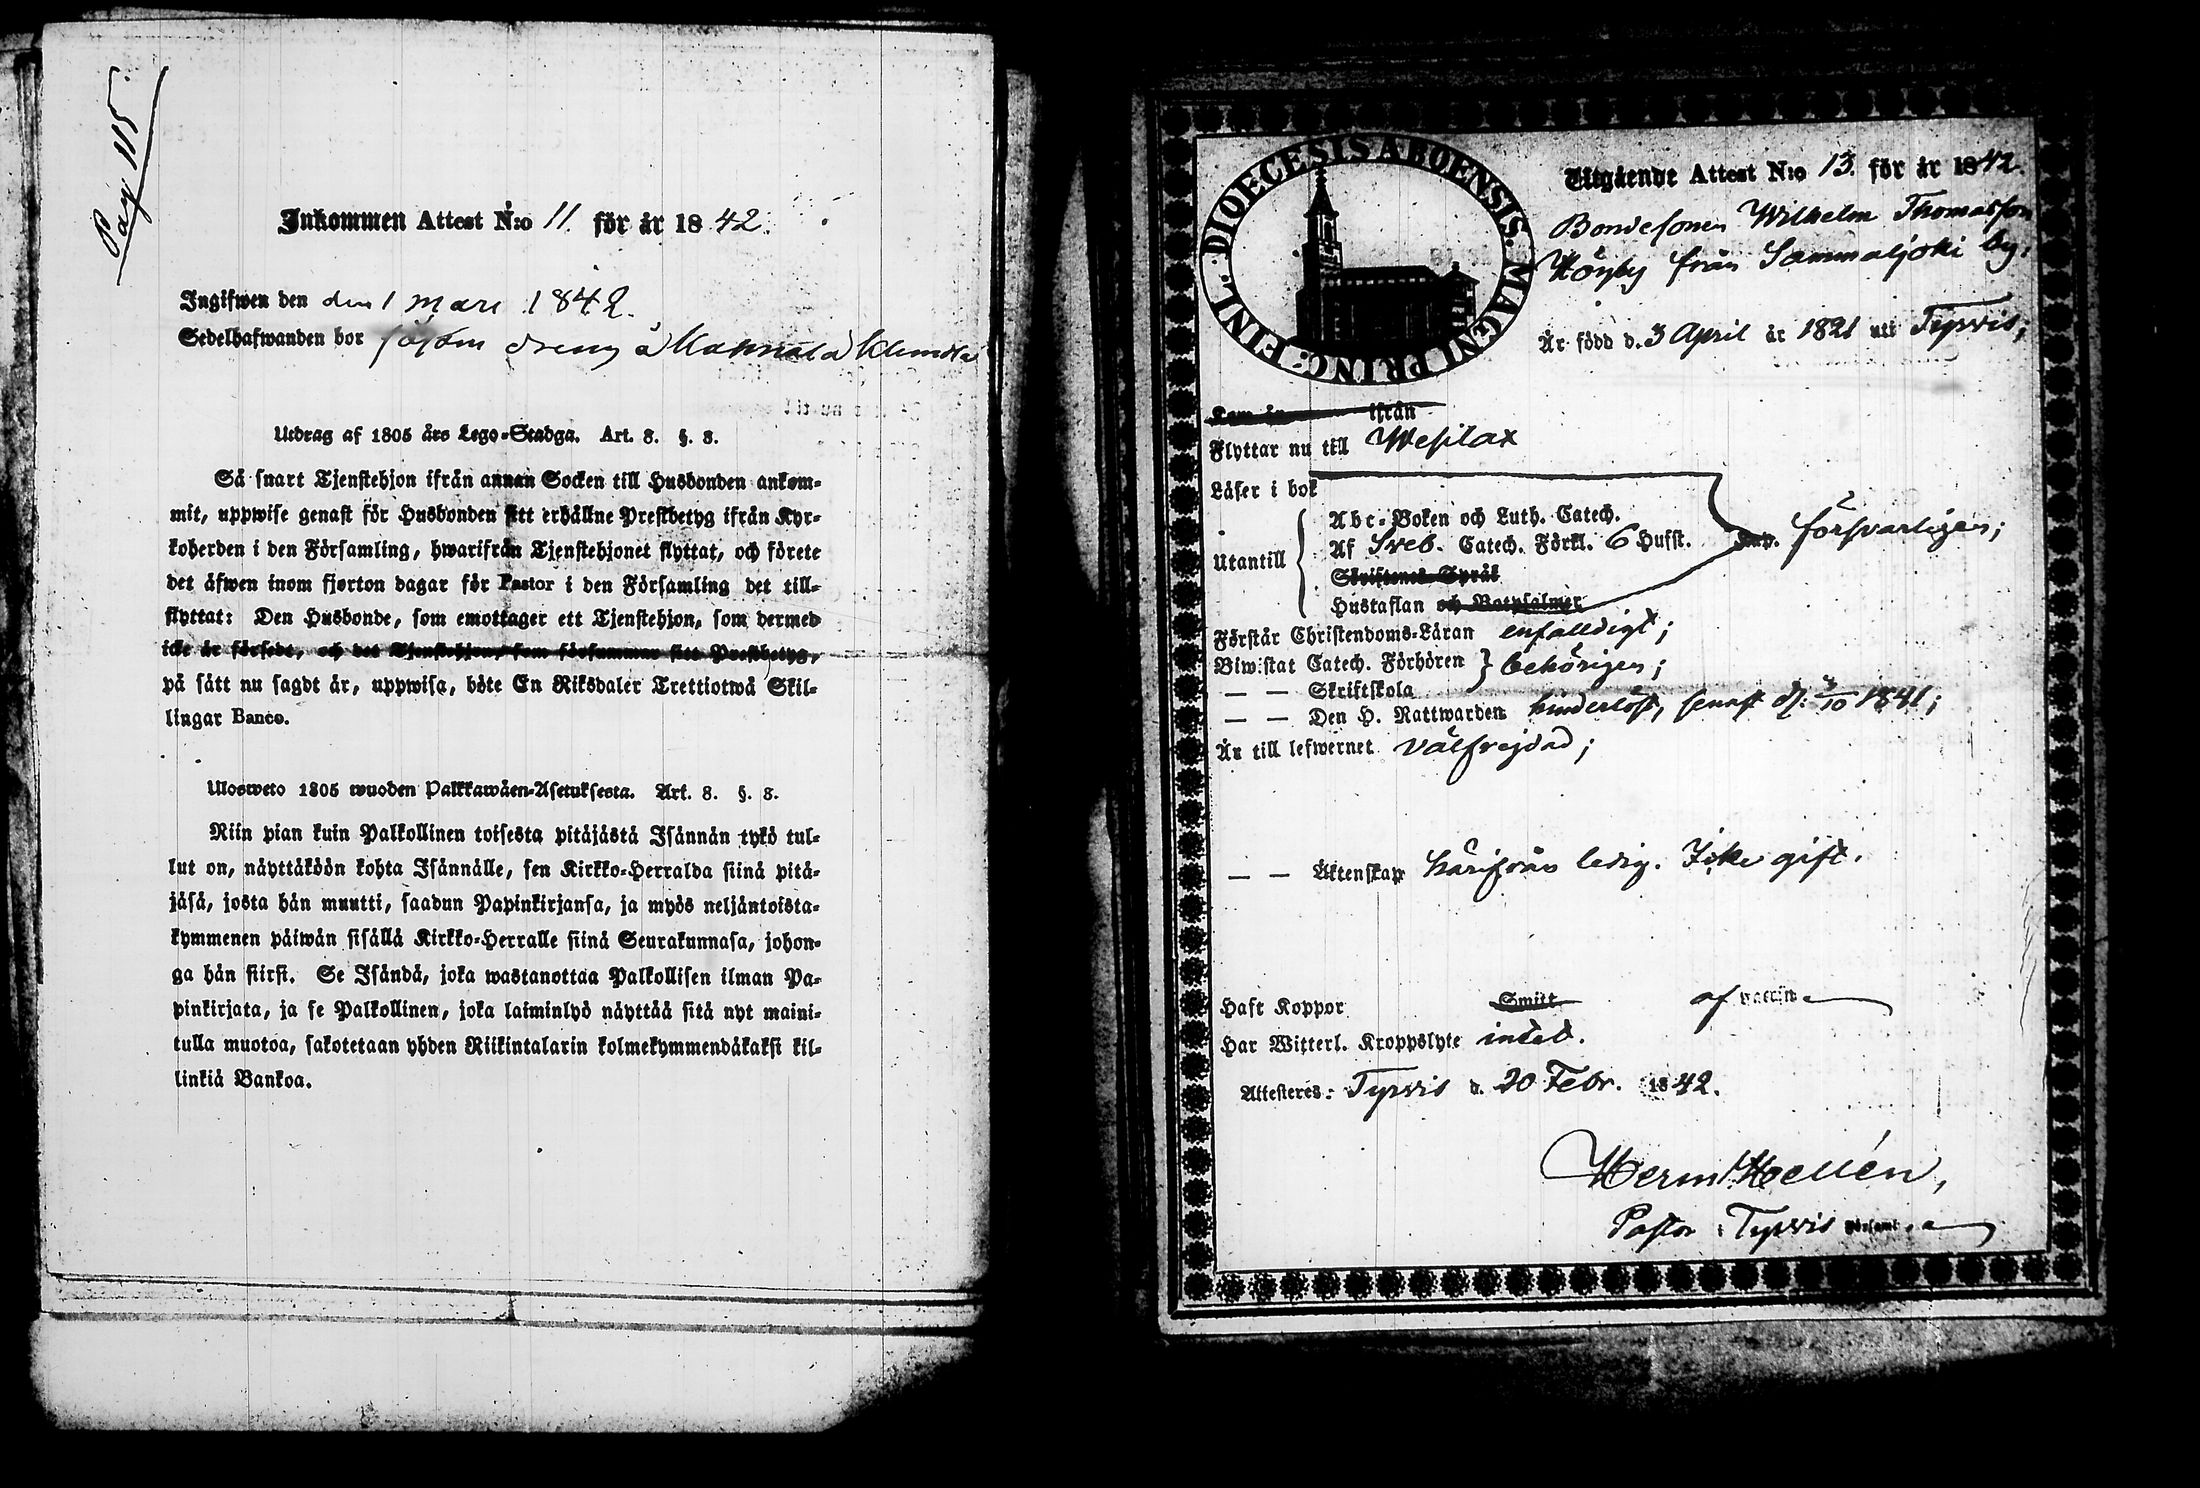 Pag 115.
Inkommen Attest N:o 11. för år 1842.
Ingifwen den den 1 Mars 1842.
Sedelhafwanden bor såsom dreng å
Utdrag af 1805 års Lego-Stadga. Art. 8. §. 8.
Så snart Tjenstehjon ifrån annan Socken till Husbonden ankom-
mit, uppwise genast för Husbonden sitt erhållne Prestbetyg ifrån Kyr-
koherden i den Församling, hwarifrån Tjenstehjonet flyttat, och förete
det äfwen inom fjorton dagar för Pastor i den Församling det till-
flyttat: Den Husbonde, som emottager ett Tjenstehjon, som dermed
icke är försedt, och det Tjenstehjon, som försummar sitt Prestbetyg,
på sätt nu sagdt är, uppwisa, böte En Riksdaler Trettiotwå Skil-
lingar Banco.
Ulosweto 1805 wuoden Palkkawäen-Asetuksesta. Art. 8. §. 8.
Niin pian kuin Palkollinen toisesta pitäjästä Isännän tykö tul-
lut on, näyttäköön kohta Isännälle, sen Kirkko-Herralda siinä pitä-
jäsä, josta hän muutti, saadun Papinkirjansa, ja myös neljäntoista-
kymmenen päiwän sisällä Kirkko-Herralle siinä Seurakunnasa, johon-
ga hän siirsi. Se Isändä, joka wastanottaa Palkollisen ilman Pa-
pinkirjata, ja se Palkollinen, joka laiminlyö näyttää sitä nyt maini-
tulla muotoa, sakotetaan yhden Riikintalarin kolmekymmendäkaksi kil-
linkiä Bankoa.
DIOECESIS ABOENSIS. MAGNI PRINC: FINL.
Utgående Attest N:o 13. för år 1842.
Bondesonen Wilhelm Thomasson
Höyby från Sammaljoki by,
Är född d. 3 April år 1821 uti Tyrvis;
Kom år ifrån
Flyttar nu till Wesilax
Läser i bok
Utantill
Abc-Boken och Luth. Catech.
Af Sveb. Catech. Förkl. 6 Hufst. Kap. försvarligen;
Skriftenes Språk
Hustaflan och Botpsalmer
Förstår Christendoms-Läran enfalldigt;
Biwistat Catech. Förhören } behörigen;
— — Skriftskola
— — Den H. Nattwarden hinderlöst, senast d. 3/10 1841;
Är till lefwernet välfrejdad;
— — Äktenskap härifrån ledig. Icke gift.
Haft Koppor Smitt af vaccin
Har Witterl. Kroppslyte intet.
Attesteres: Tyrvis d. 20 Febr. 1842.
Herm Hellén,
Pastor i Tyrvis Församl.